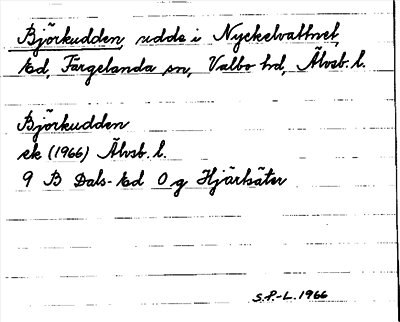 Björkudden, udde i Nyckelvattnet,
Ed, Färgelanda sn, Valbo hd, Älvsb. l.
Björkudden
ek (1966) Älvsb. l.
9 B Dals-Ed 0 g Hjärtsäter
S.P.-L. 1966